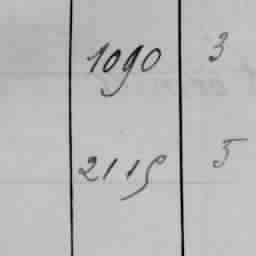 1090 3
2115 5